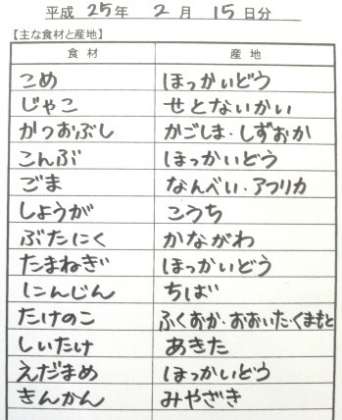 平成 25年 2月 15日分
【主な食材と産地】
食材 産地
こめ ほっかいどう
じゃこ せとないかい
かつおぶし かごしま・しずおか
こんぶ ほっかいどう
ごま なんべい・アフリカ
しょうが こうち
ぶたにく かながわ
たまねぎ ほっかいどう
にんじん ちば
たけのこ ふくおか・おおいた・くまもと
しいたけ あきた
えだまめ ほっかいどう
きんかん みやざき